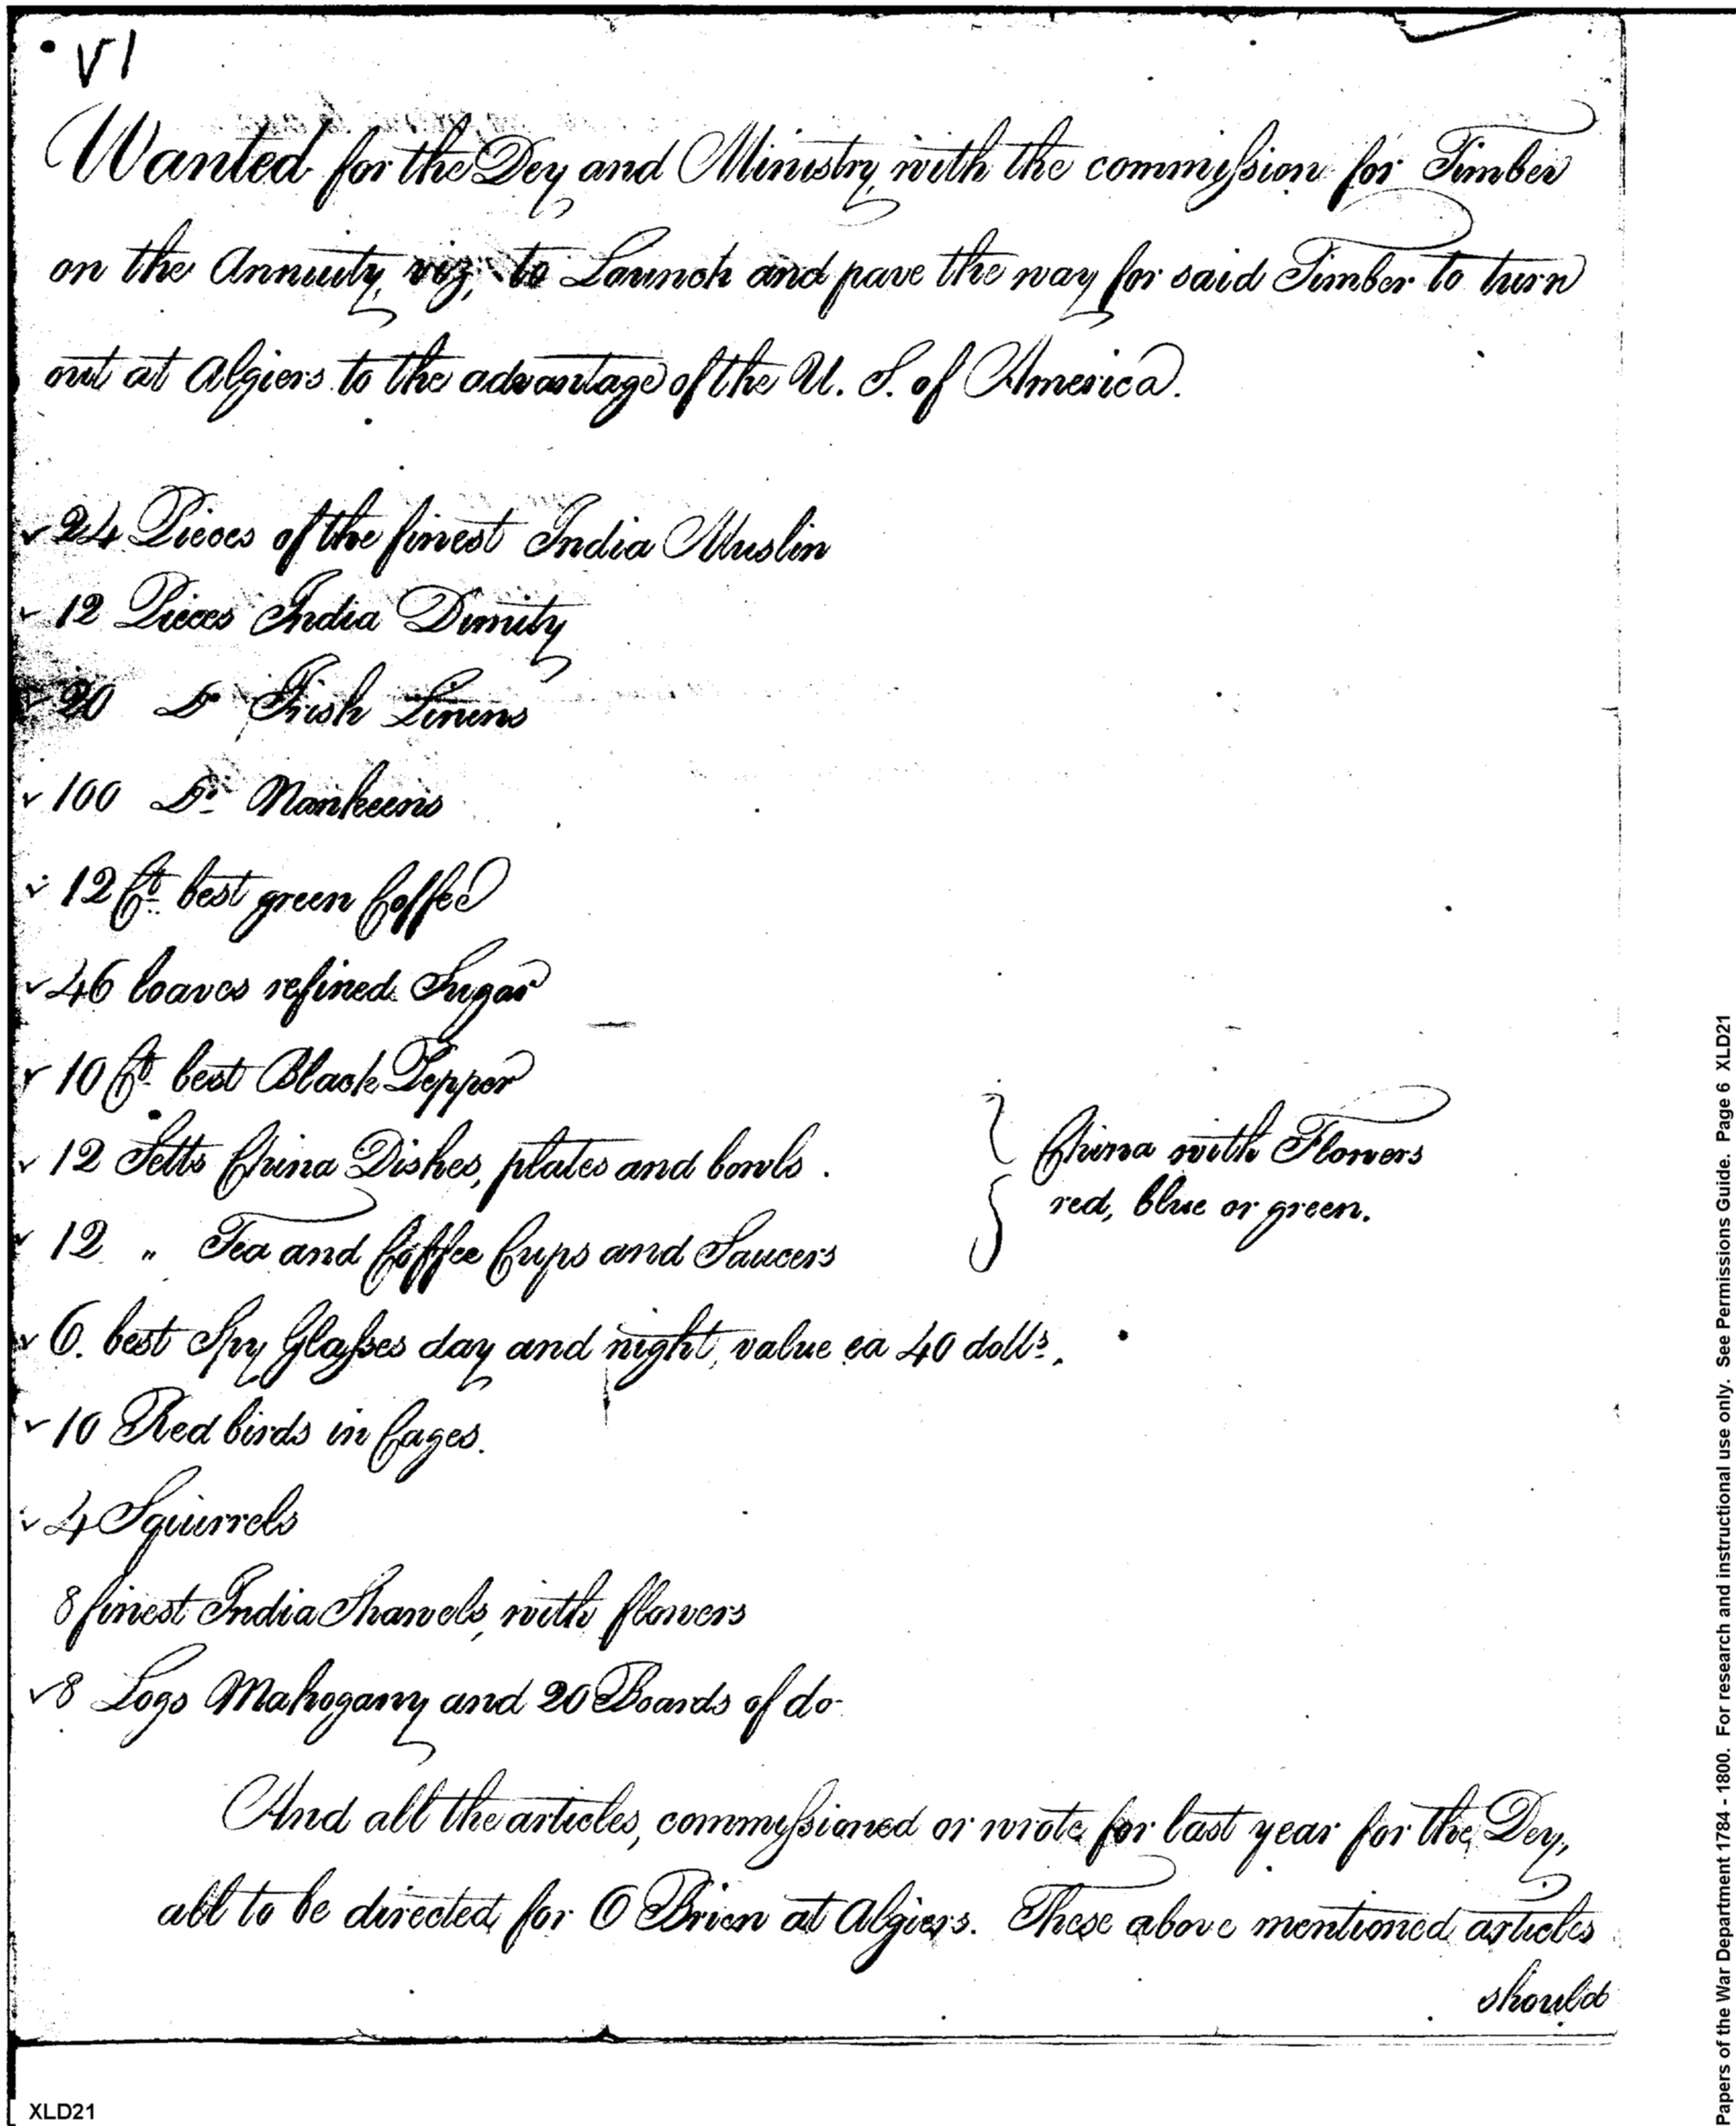 VI
Wanted for the Dey and Ministry, with the commission for Timber
on the Annuity, viz, to Launch and pave the way for said Timber to turn
out at Algiers to the advantage of the U. S. of America.
✓ 24 Pieces of the finest India Muslin
✓ 12 Pieces India Dimity
✓ 20 Do Irish Linens
✓ 100 Do. Nankeens
✓ 12 Ct. best green Coffee
✓ 46 loaves refined Sugar
✓ 10 Ct. best Black Pepper
✓ 12 Setts China Dishes, plates and bowls.
✓ 12 " Tea and Coffee Cups and Saucers
China with Flowers
red, blue or green.
✓ 6. best Spy Glasses day and night, value ea 40 dolls.
✓ 10 Red birds in Cages.
✓ 4 Squirrels
8 finest India Shawels, with flowers
✓ 8 Logs Mahogany and 20 Boards of do
And all the articles, commissioned or wrote for last year for the Dey,
all to be directed for O Brien at Algiers. These above mentioned articles
should
XLD21
Papers of the War Department 1784 - 1800. For research and instructional use only. See Permissions Guide. Page 6 XLD21